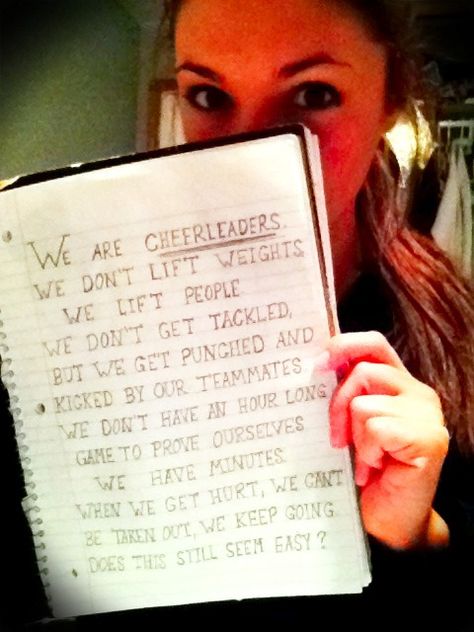 WE ARE CHEERLEADERS.
WE DON'T LIFT WEIGHTS
WE LIFT PEOPLE
WE DON'T GET TACKLED,
BUT WE GET PUNCHED AND
KICKED BY OUR TEAMMATES
WE DON'T HAVE AN HOUR LONG
GAME TO PROVE OURSELVES
WE HAVE MINUTES.
WHEN WE GET HURT, WE CAN'T
BE TAKEN OUT, WE KEEP GOING.
DOES THIS STILL SEEM EASY?